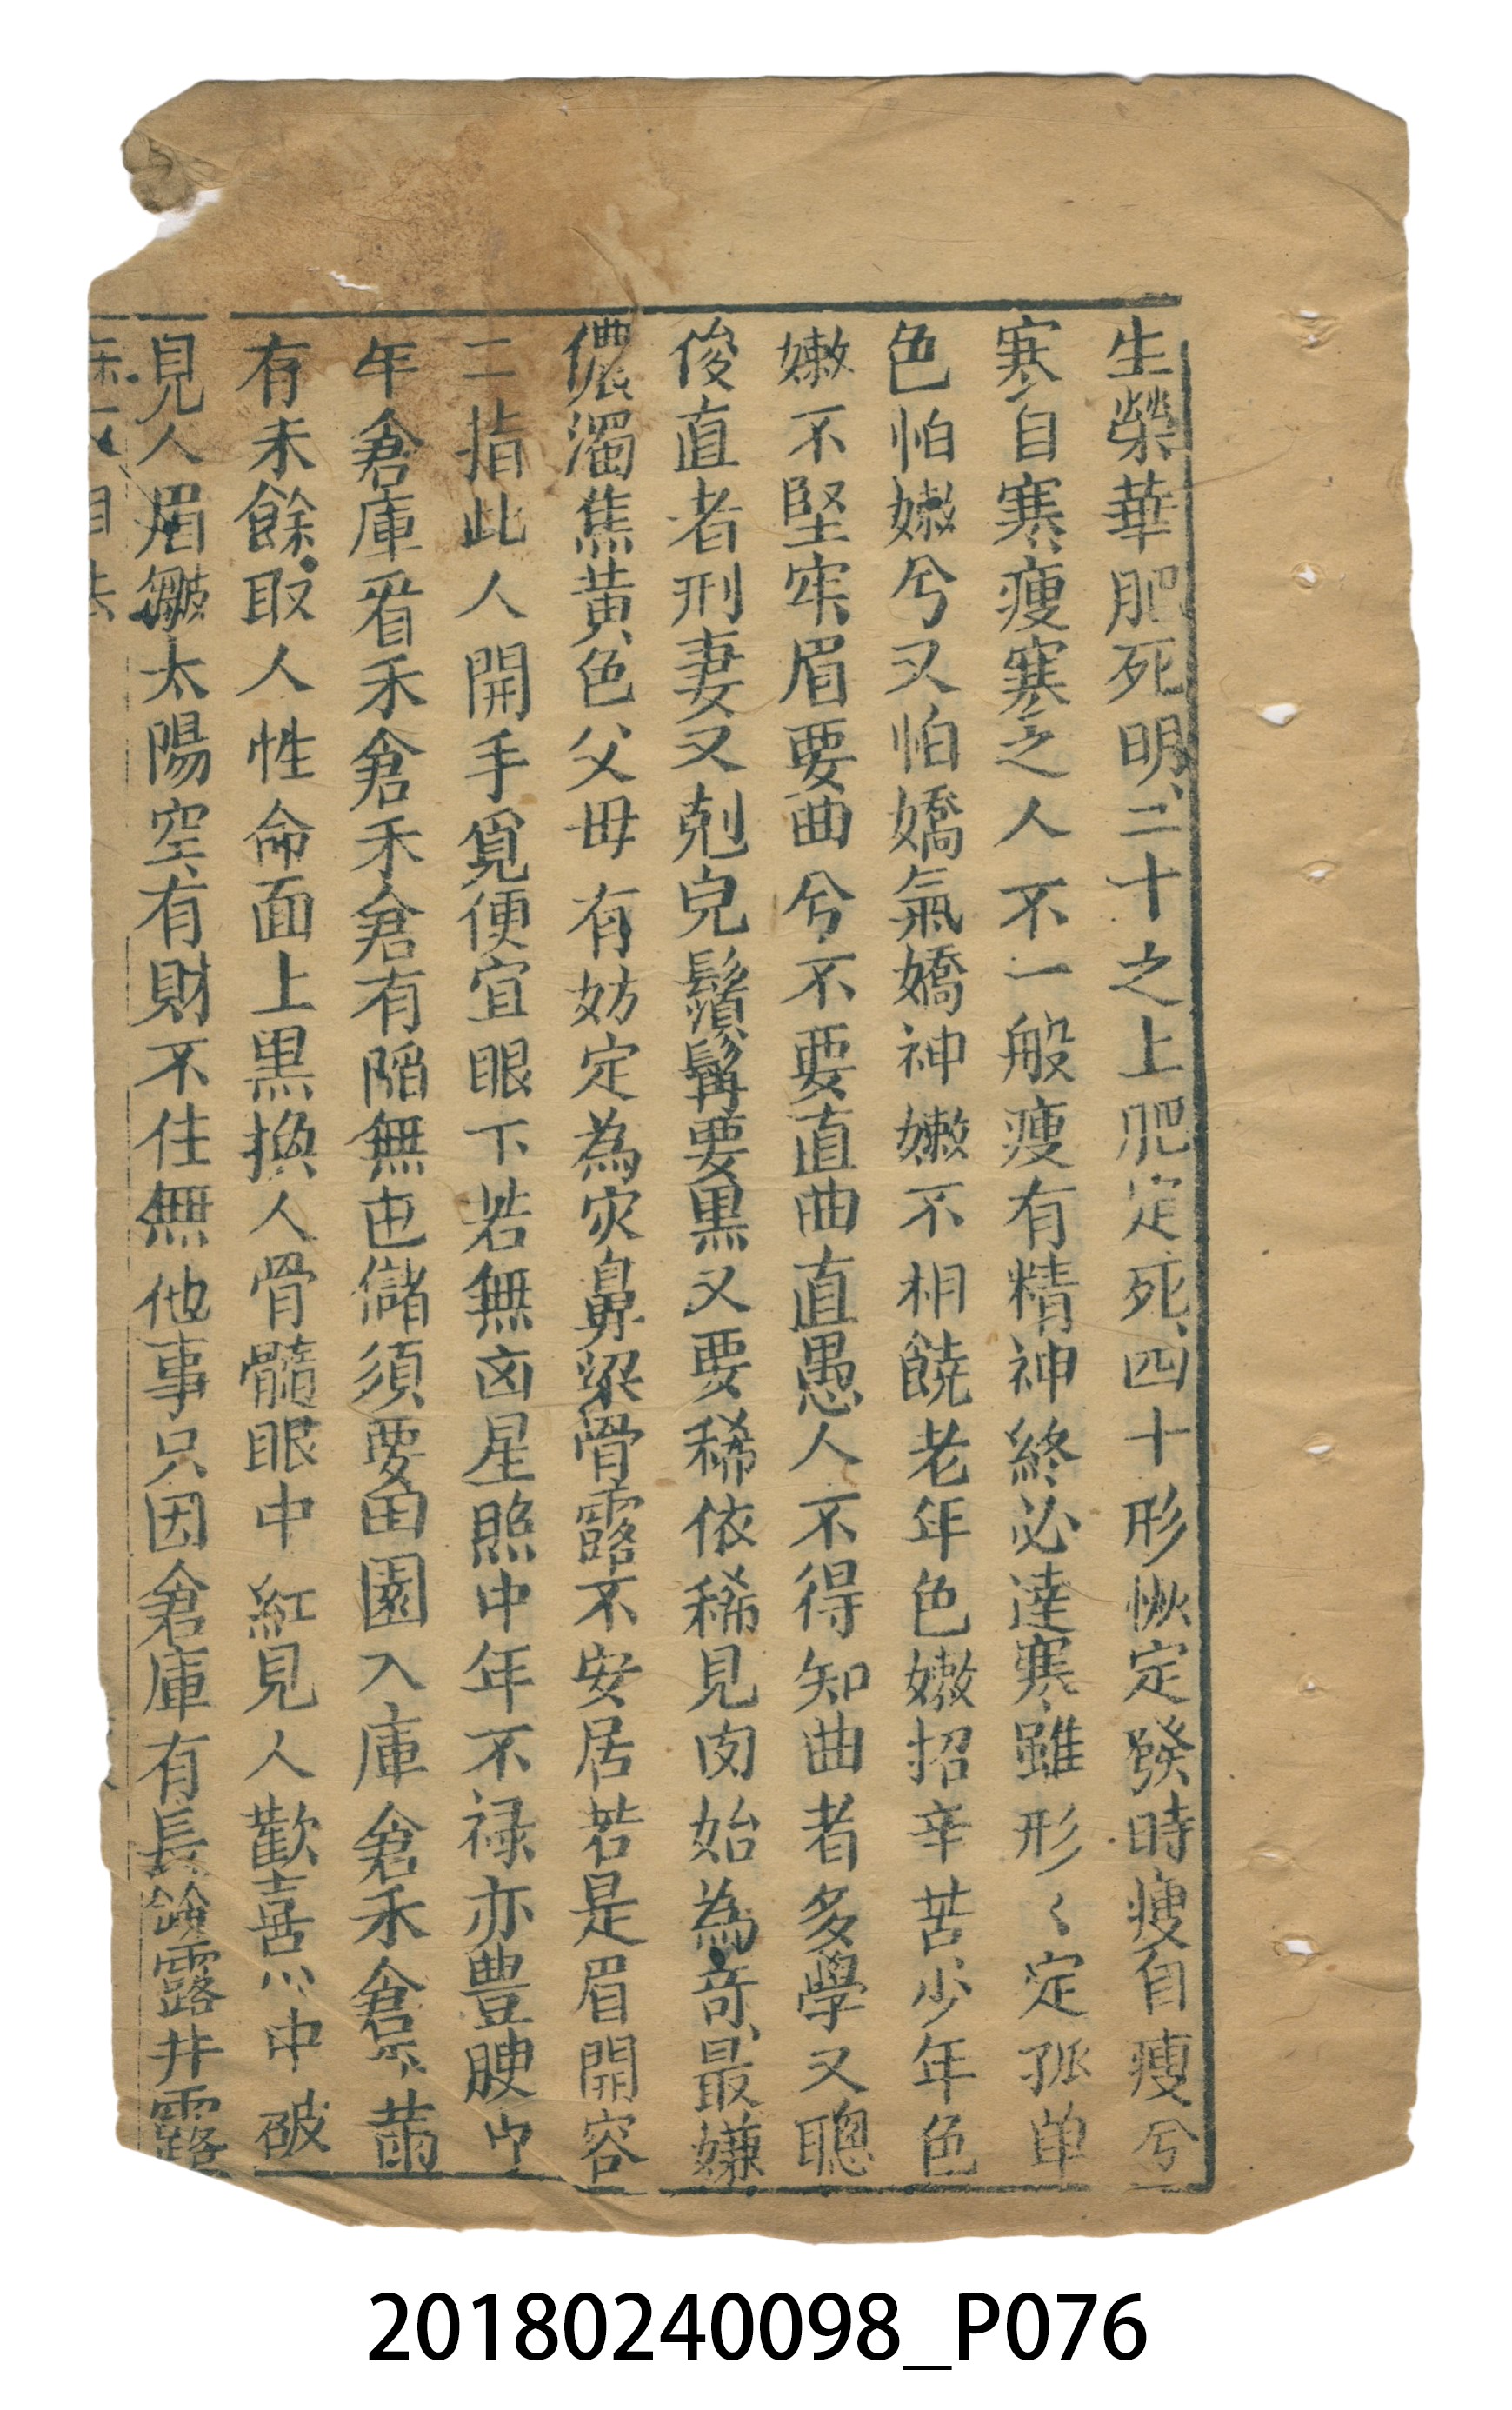 生榮華肥死明二十之上肥定死四十形恢定發時瘦自瘦兮
寒自寒瘦寒之人不一般瘦有精神終必達寒雖形〻定孤单
色怕嫩兮又怕嬌氣嬌神嫩不相饒老年色嫩招辛苦少年色
嫩不堅牢眉要曲兮不要直曲直愚人不得知曲者多學又聰
俊直者刑妻又剋兒鬚髯要黑又要稀依稀見肉始為竒最嫌
濃濁焦黄色父母有妨定為灾鼻梁骨露不安居若是眉開容
二指此人開手覓便宜眼下若無凶星照中年不禄亦豊腴
年倉庫看禾倉禾倉有陷無屯儲須要田園入庫倉禾倉
有未餘取人性命面上黒換人骨髓眼中紅見人歡喜心中破
見人眉皺太陽空有財不住無他事只因倉庫有長鎗露井露
20180240098_P076